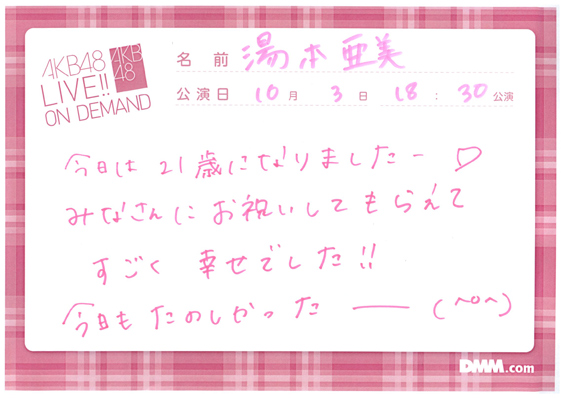 AKB48
LIVE!!
ON DEMAND
AKB
48
名前 湯本亜美
公演日 10月 3日 18:30公演
今日は21歳になりましたー♡
みなさんにお祝いしてもらえて
すごく 幸せでした!!
今日も たのしかった ー (^o^)
DMM.com